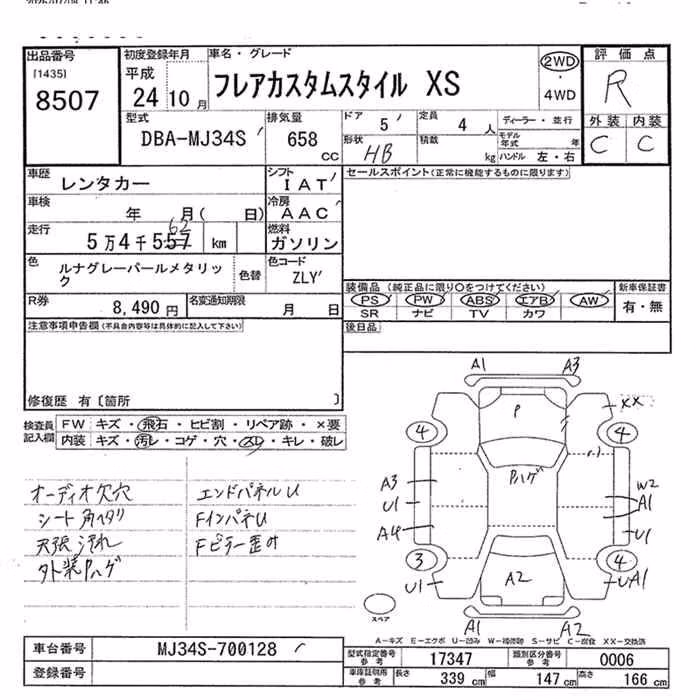 出品番号
[1435]
8507
初度登録年月
平成
24 10 月
車名・グレード
フレアカスタムスタイル XS
2WD
・
4WD
評価点
R
外装 内装
C C
型式
DBA-MJ34S
排気量
658
cc
ドア 5
形状 HB
定員 4 人
積載 kg
ディーラー・並行
モデル年式 年
ハンドル 左・右
車歴
レンタカー
シフト
IAT
セールスポイント(正常に機能するものに限ります)
車検
年 月( 日)
冷房
AAC
走行
62
5万4千557 km
燃料
ガソリン
色
ルナグレーパールメタリック
色替
色コード
ZLY
装備品 (純正品に限り○をつけてください)
PS PW ABS エアB AW
SR ナビ TV カワ
新車保証書
有・無
R券
8,490 円
名変通知期限
月 日
後日品
注意事項申告欄(不具合内容等は具体的に記入して下さい)
修復歴 有〔箇所 〕
検査員記入欄
FW キズ・飛石・ヒビ割・リペア跡・×要
内装 キズ・汚レ・コゲ・穴・スレ・キレ・破レ
オーディオ欠穴
シート角ヘタリ
天張汚れ
外装Pハゲ
エンドパネルU
FインパネU
Fピラー歪み
A1 A3
P
XX
4 4
Pハゲ
A3
U1
A4
W2
A1
U1
3 4
U1
A2
UA1
A1 A2
スペア
A-キズ E-エクボ U-凹み W-補修跡 S-サビ C-腐食 XX-交換済
車台番号
MJ34S-700128
登録番号
型式指定番号
参考
17347
類別区分番号
参考
0006
車庫証明用
参考
長さ 339 cm
幅 147 cm
高さ 166 cm